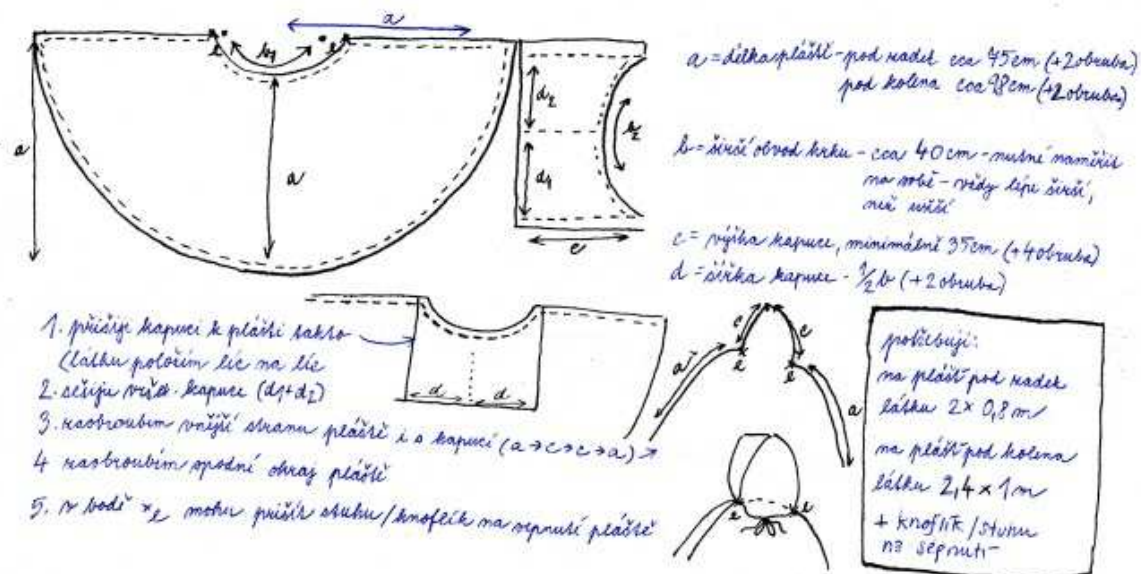 a = délka pláště - pod zadek cca 75cm (+2obruba)
pod kolena cca 98cm (+2obruba)
b = širší obvod krku - cca 40cm - nutné naměřit
na sobě - vždy lépe širší,
než užší
c = výška kapuce, minimálně 35cm (+4obruba)
d = šířka kapuce - 1/2 b (+2obruba)
a
e
b1
e
a
a
d2
d1
b2
c
1. přišiji kapuci k plášti takto
(látku položím líc na líc
2. sešiji kapuce (d1+d2)
3. zaobroubím vnější stranu pláště i s kapucí (a→c→c→a)
4 zaobroubím spodní okraj pláště
5. v bodě xe mohu přišít stuhu/knoflík na sepnutí pláště
d
d
c
c
a
e
e
a
e
e
potřebuji:
na plášť pod zadek
látku 2× 0,8 m
na plášť pod kolena
látku 2,4 × 1 m
+ knoflík/stuhu
na sepnutí